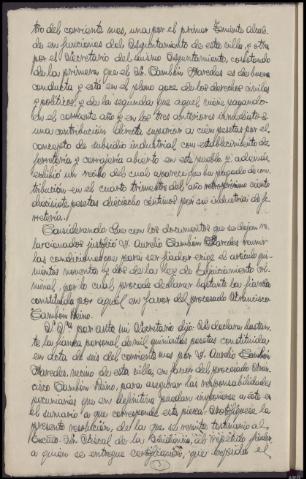 tro del corriente mes, una por el primer Teniente Alcal-
de en funciones del Ayuntamiento de esta villa, y otra
por el Secretario del mismo Ayuntamiento, constando
de la primera que el D. Cambón Paredes es de buena
conducta y está en el pleno goce de los derechos civiles
y políticos, y de la segunda que aquel viene pagando
en el corriente año y en los tres anteriores inmediatos
una contribución directa superior a cien pesetas por el
concepto de subsidio industrial con establecimiento de
ferretería y cerrajería abierto en este pueblo, y además
exhibió un recibo del cual aparece que ha pagado de con-
tribución en el cuarto trimestre del año ciento
diecisiete pesetas dieciocho céntimos por su industria de fe-
rretería.
Considerando que con los documentos que se dejan re-
lacionados justificó D. Aurelio Cambón Paredes reunir
las condiciones que para ser fiador exige el artículo qui-
nientos noventa y dos de la ley de Enjuiciamiento Cri-
minal, por lo cual procede declarar bastante la fianza
constituida por aquel en favor del procesado Francisco
Cambón Reino.
S. Sª por ante mi Secretario dijo: Se declara bastan-
te la fianza personal de mil quinientas pesetas constituida
en acta del seis del corriente mes por D. Aurelio Cambón
Paredes, vecino de esta villa, en favor del procesado Fran-
cisco Cambón Reino, para asegurar las responsabilidades
pecuniarias que en definitiva puedan imponerse a este en
el sumario a que corresponde esta pieza. Notifíquese la
presente resolución, de la que se remita testimonio al
Excmo. Sr. Fiscal de la Audiencia, al repetido fiador
a quien se entregue certificación, que expedirá el